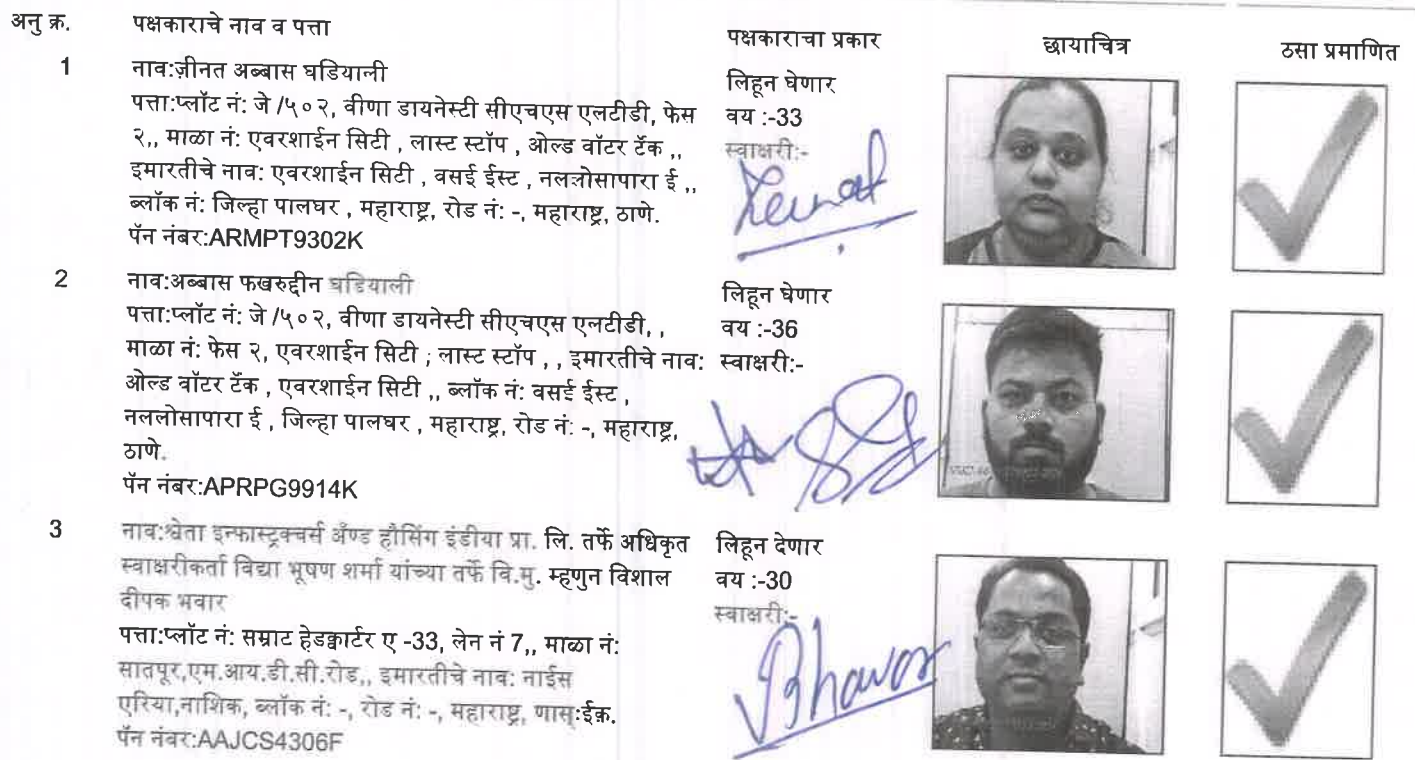 अनु क्र. पक्षकाराचे नाव व पत्ता पक्षकाराचा प्रकार छायाचित्र ठसा प्रमाणित
1 नाव:ज़ीनत अब्बास घडियानी
पत्ता:प्लॉट नं: जे /५०२, वीणा डायनेस्टी सीएचएस एलटीडी, फेस
२,, माळा नं: एवरशाईन सिटी , लास्ट स्टॉप , ओल्ड वॉटर टॅक ,,
इमारतीचे नाव: एवरशाईन सिटी , वसई ईस्ट , नलजोसापारा ई ,,
ब्लॉक नं: जिल्हा पालघर , महाराष्ट्र, रोड नं: -, महाराष्ट्र, ठाणे.
पॅन नंबर:ARMPT9302K
लिहून घेणार
वय :-33
स्वाक्षरी:-
2 नाव:अब्बास फखरुद्दीन घडियाली
पत्ता:प्लॉट नं: जे /५०२, वीणा डायनेस्टी सीएचएस एलटीडी, ,
माळा नं: फेस २, एवरशाईन सिटी ; लास्ट स्टॉप , , इमारतीचे नाव:
ओल्ड वॉटर टॅंक , एवरशाईन सिटी ,, ब्लॉक नं: वसई ईस्ट ,
नललोसापारा ई , जिल्हा पालघर , महाराष्ट्र, रोड नं: -, महाराष्ट्र,
ठाणे.
पॅन नंबर:APRPG9914K
लिहून घेणार
वय :-36
स्वाक्षरी:-
3 नाव:श्वेता इन्फास्ट्रक्चर्स अँण्ड हौसिंग इंडीया प्रा. लि. तर्फे अधिकृत
स्वाक्षरीकर्ता विद्या भूषण शर्मा यांच्या तर्फे वि.मु. म्हणुन विशाल
दीपक भवार
पत्ता:प्लॉट नं: सम्राट हेडक्वार्टर ए -33, लेन नं 7,, माळा नं:
सातपूर,एम.आय.डी.सी.रोड,, इमारतीचे नाव: नाईस
एरिया,नाशिक, ब्लॉक नं: -, रोड नं: -, महाराष्ट्र, णास्ःईक़.
पॅन नंबर:AAJCS4306F
लिहून देणार
वय :-30
स्वाक्षरी:-
Bhawar